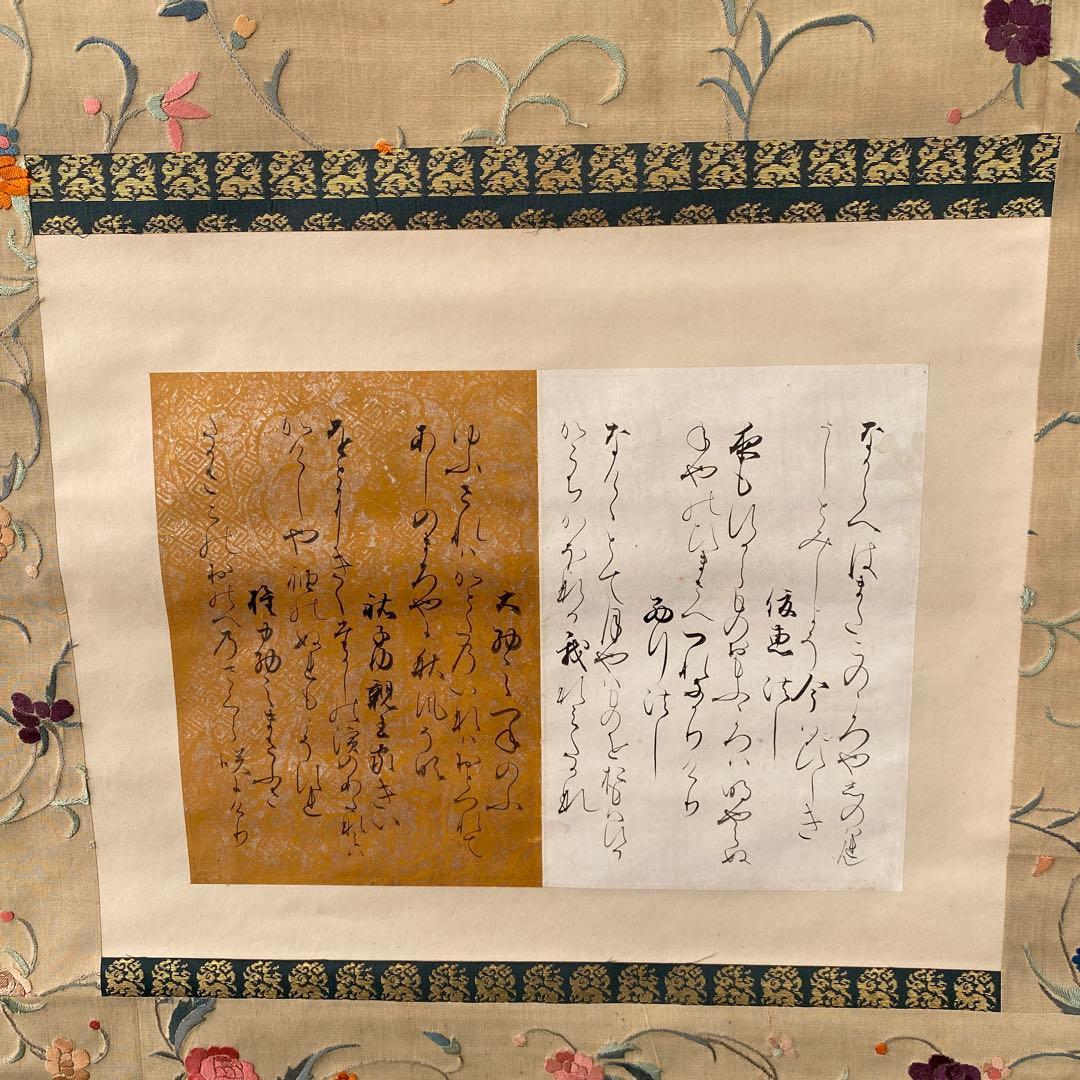 なからへはまたこのころやしのはれ
うしとみしよそ今はこひしき
俊恵法し
夜もすからものおもふころは明やらぬ
ねやのひまさへつれなかりけり
西行法し
なけゝとて月やはものをおもはする
かこちかほなる我なみたかな
大納言つねのふ
ゆふされはかとたのいなはおとつれて
あしのまろやに秋風そ吹
祐子内親王家きい
をとにきくたかしの濱のあたなみは
かけしや袖のぬれもこそすれ
権中納言まさふさ
たかさこのおのへのさくら咲にけり